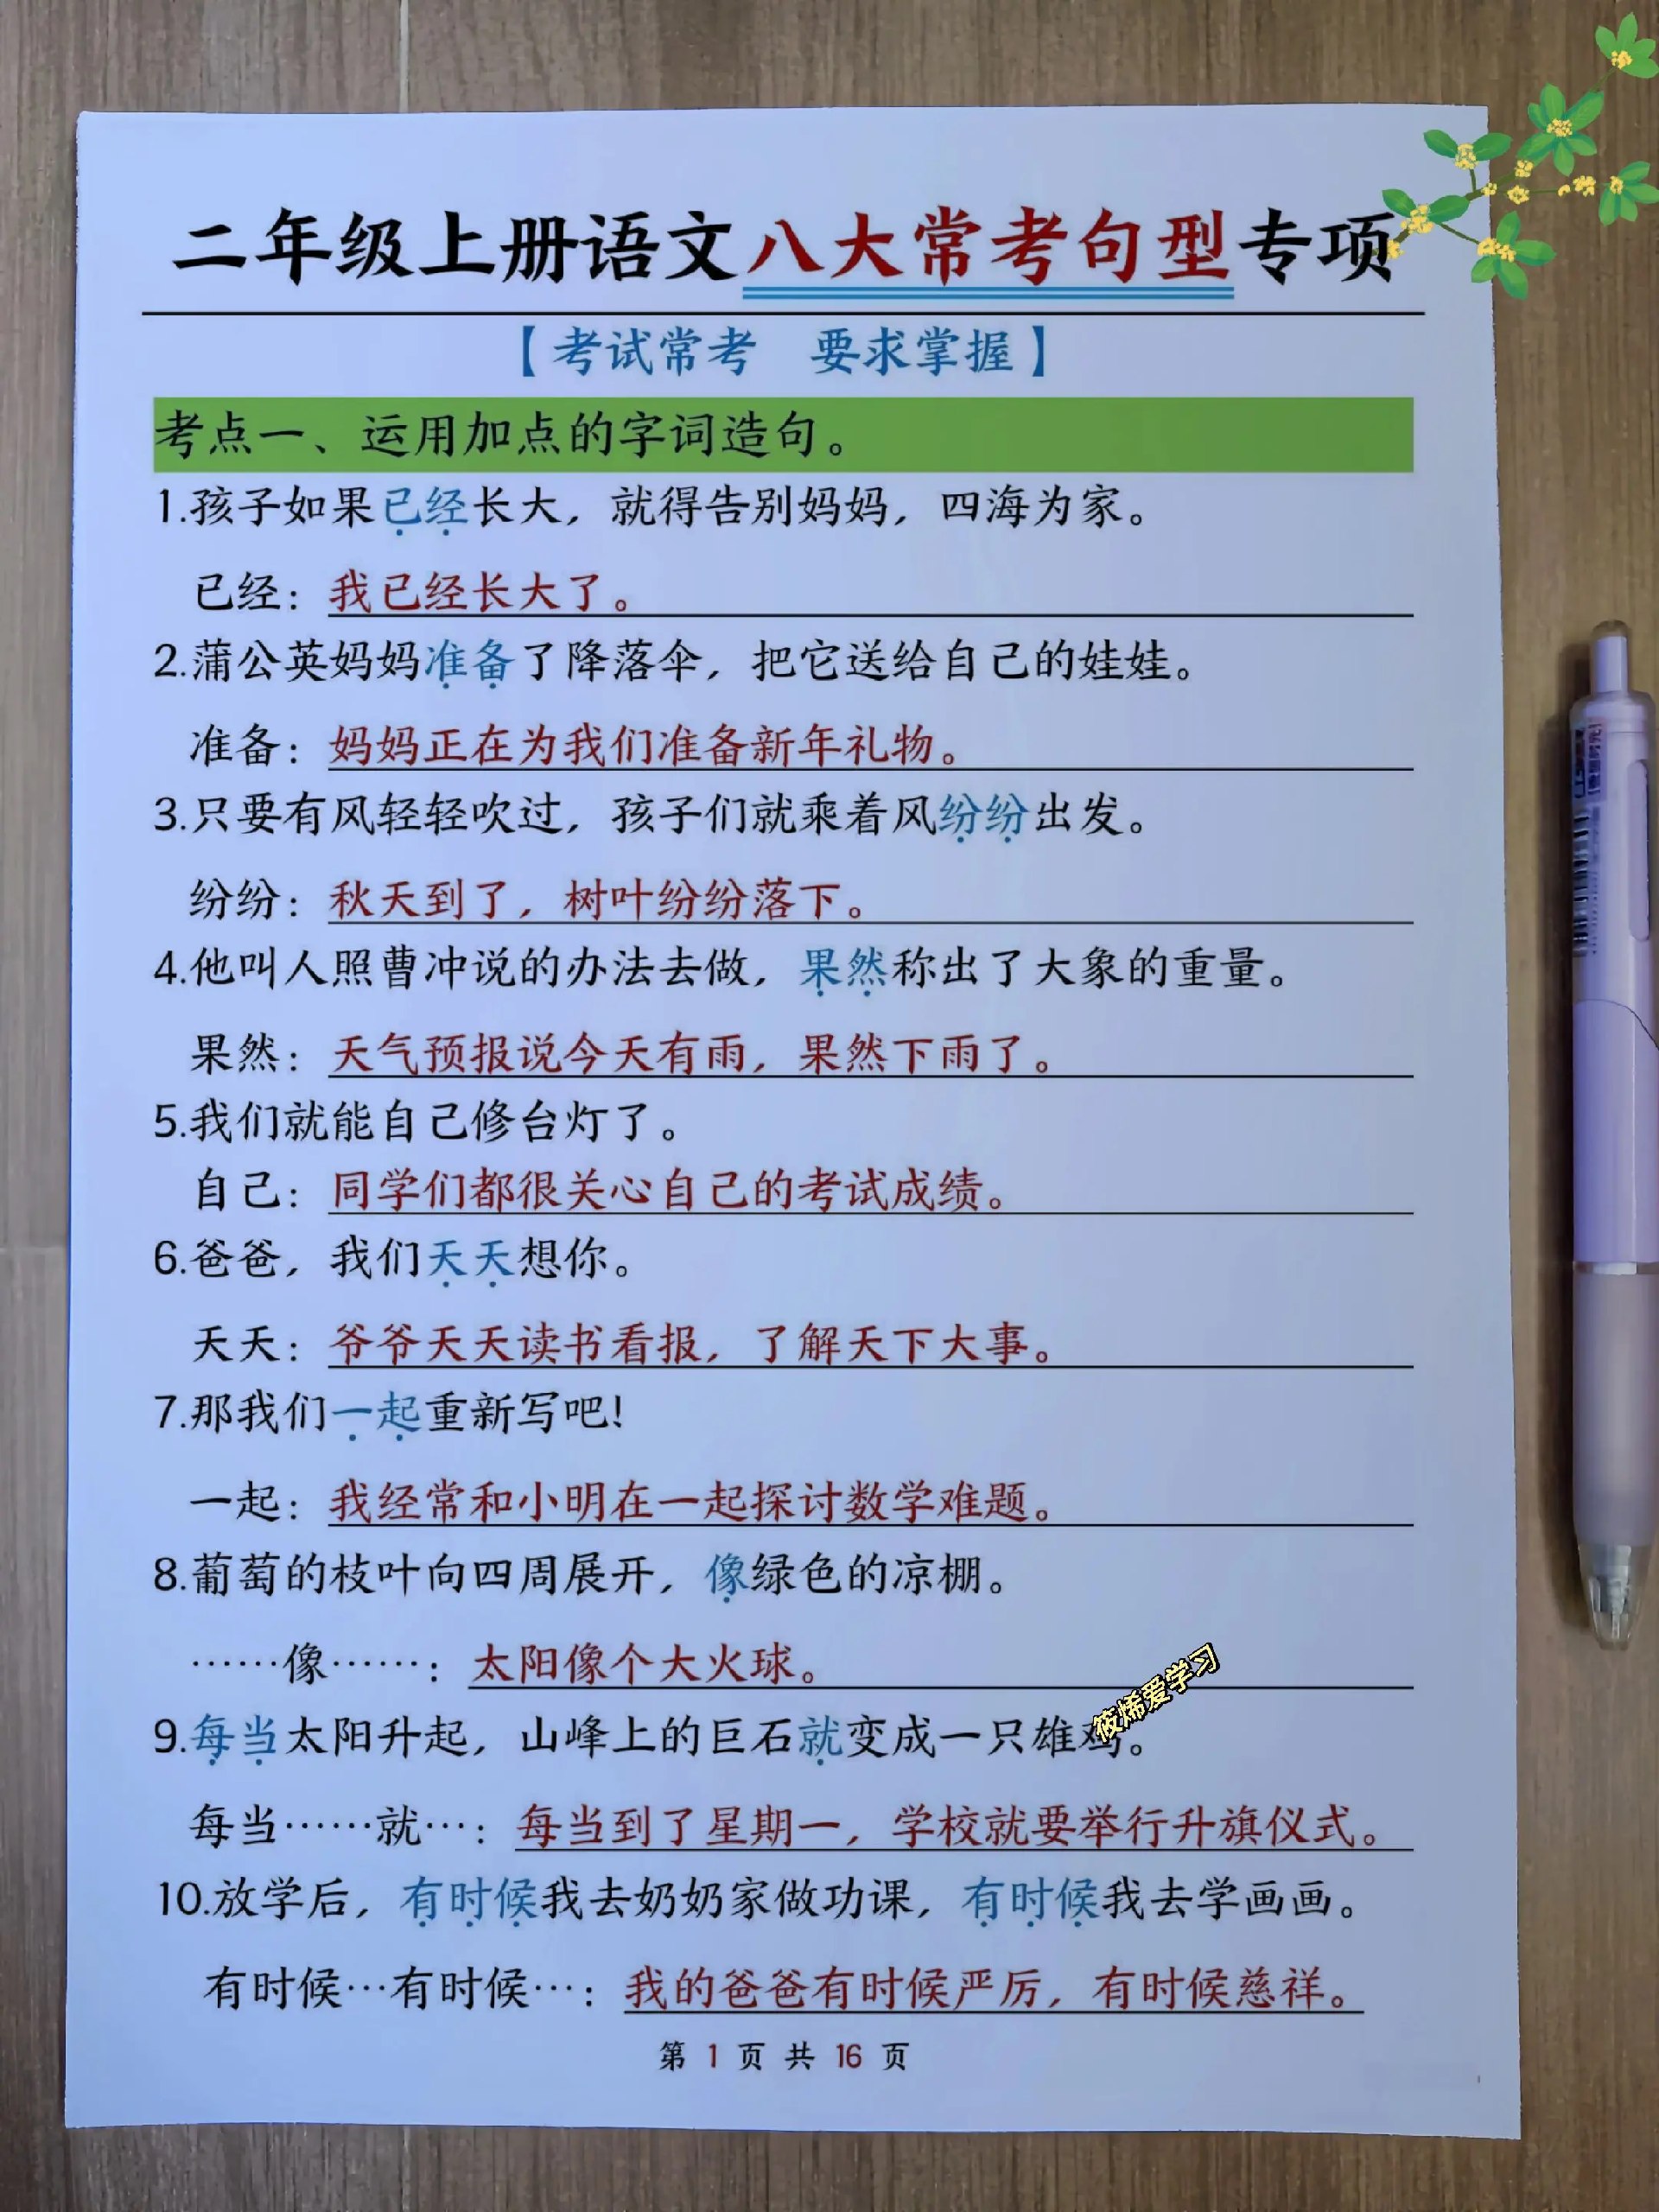 二年级上册语文八大常考句型专项
【考试常考 要求掌握】
考点一、运用加点的字词造句。
1.孩子如果已经长大，就得告别妈妈，四海为家。
已经：我已经长大了。
2.蒲公英妈妈准备了降落伞，把它送给自己的娃娃。
准备：妈妈正在为我们准备新年礼物。
3.只要有风轻轻吹过，孩子们就乘着风纷纷出发。
纷纷：秋天到了，树叶纷纷落下。
4.他叫人照曹冲说的办法去做，果然称出了大象的重量。
果然：天气预报说今天有雨，果然下雨了。
5.我们就能自己修台灯了。
自己：同学们都很关心自己的考试成绩。
6.爸爸，我们天天想你。
天天：爷爷天天读书看报，了解天下大事。
7.那我们一起重新写吧！
一起：我经常和小明在一起探讨数学难题。
8.葡萄的枝叶向四周展开，像绿色的凉棚。
……像……：太阳像个大火球。
筱烯爱学习
9.每当太阳升起，山峰上的巨石就变成一只雄鸡。
每当……就…：每当到了星期一，学校就要举行升旗仪式。
10.放学后，有时候我去奶奶家做功课，有时候我去学画画。
有时候…有时候…：我的爸爸有时候严厉，有时候慈祥。
第 1 页 共 16 页